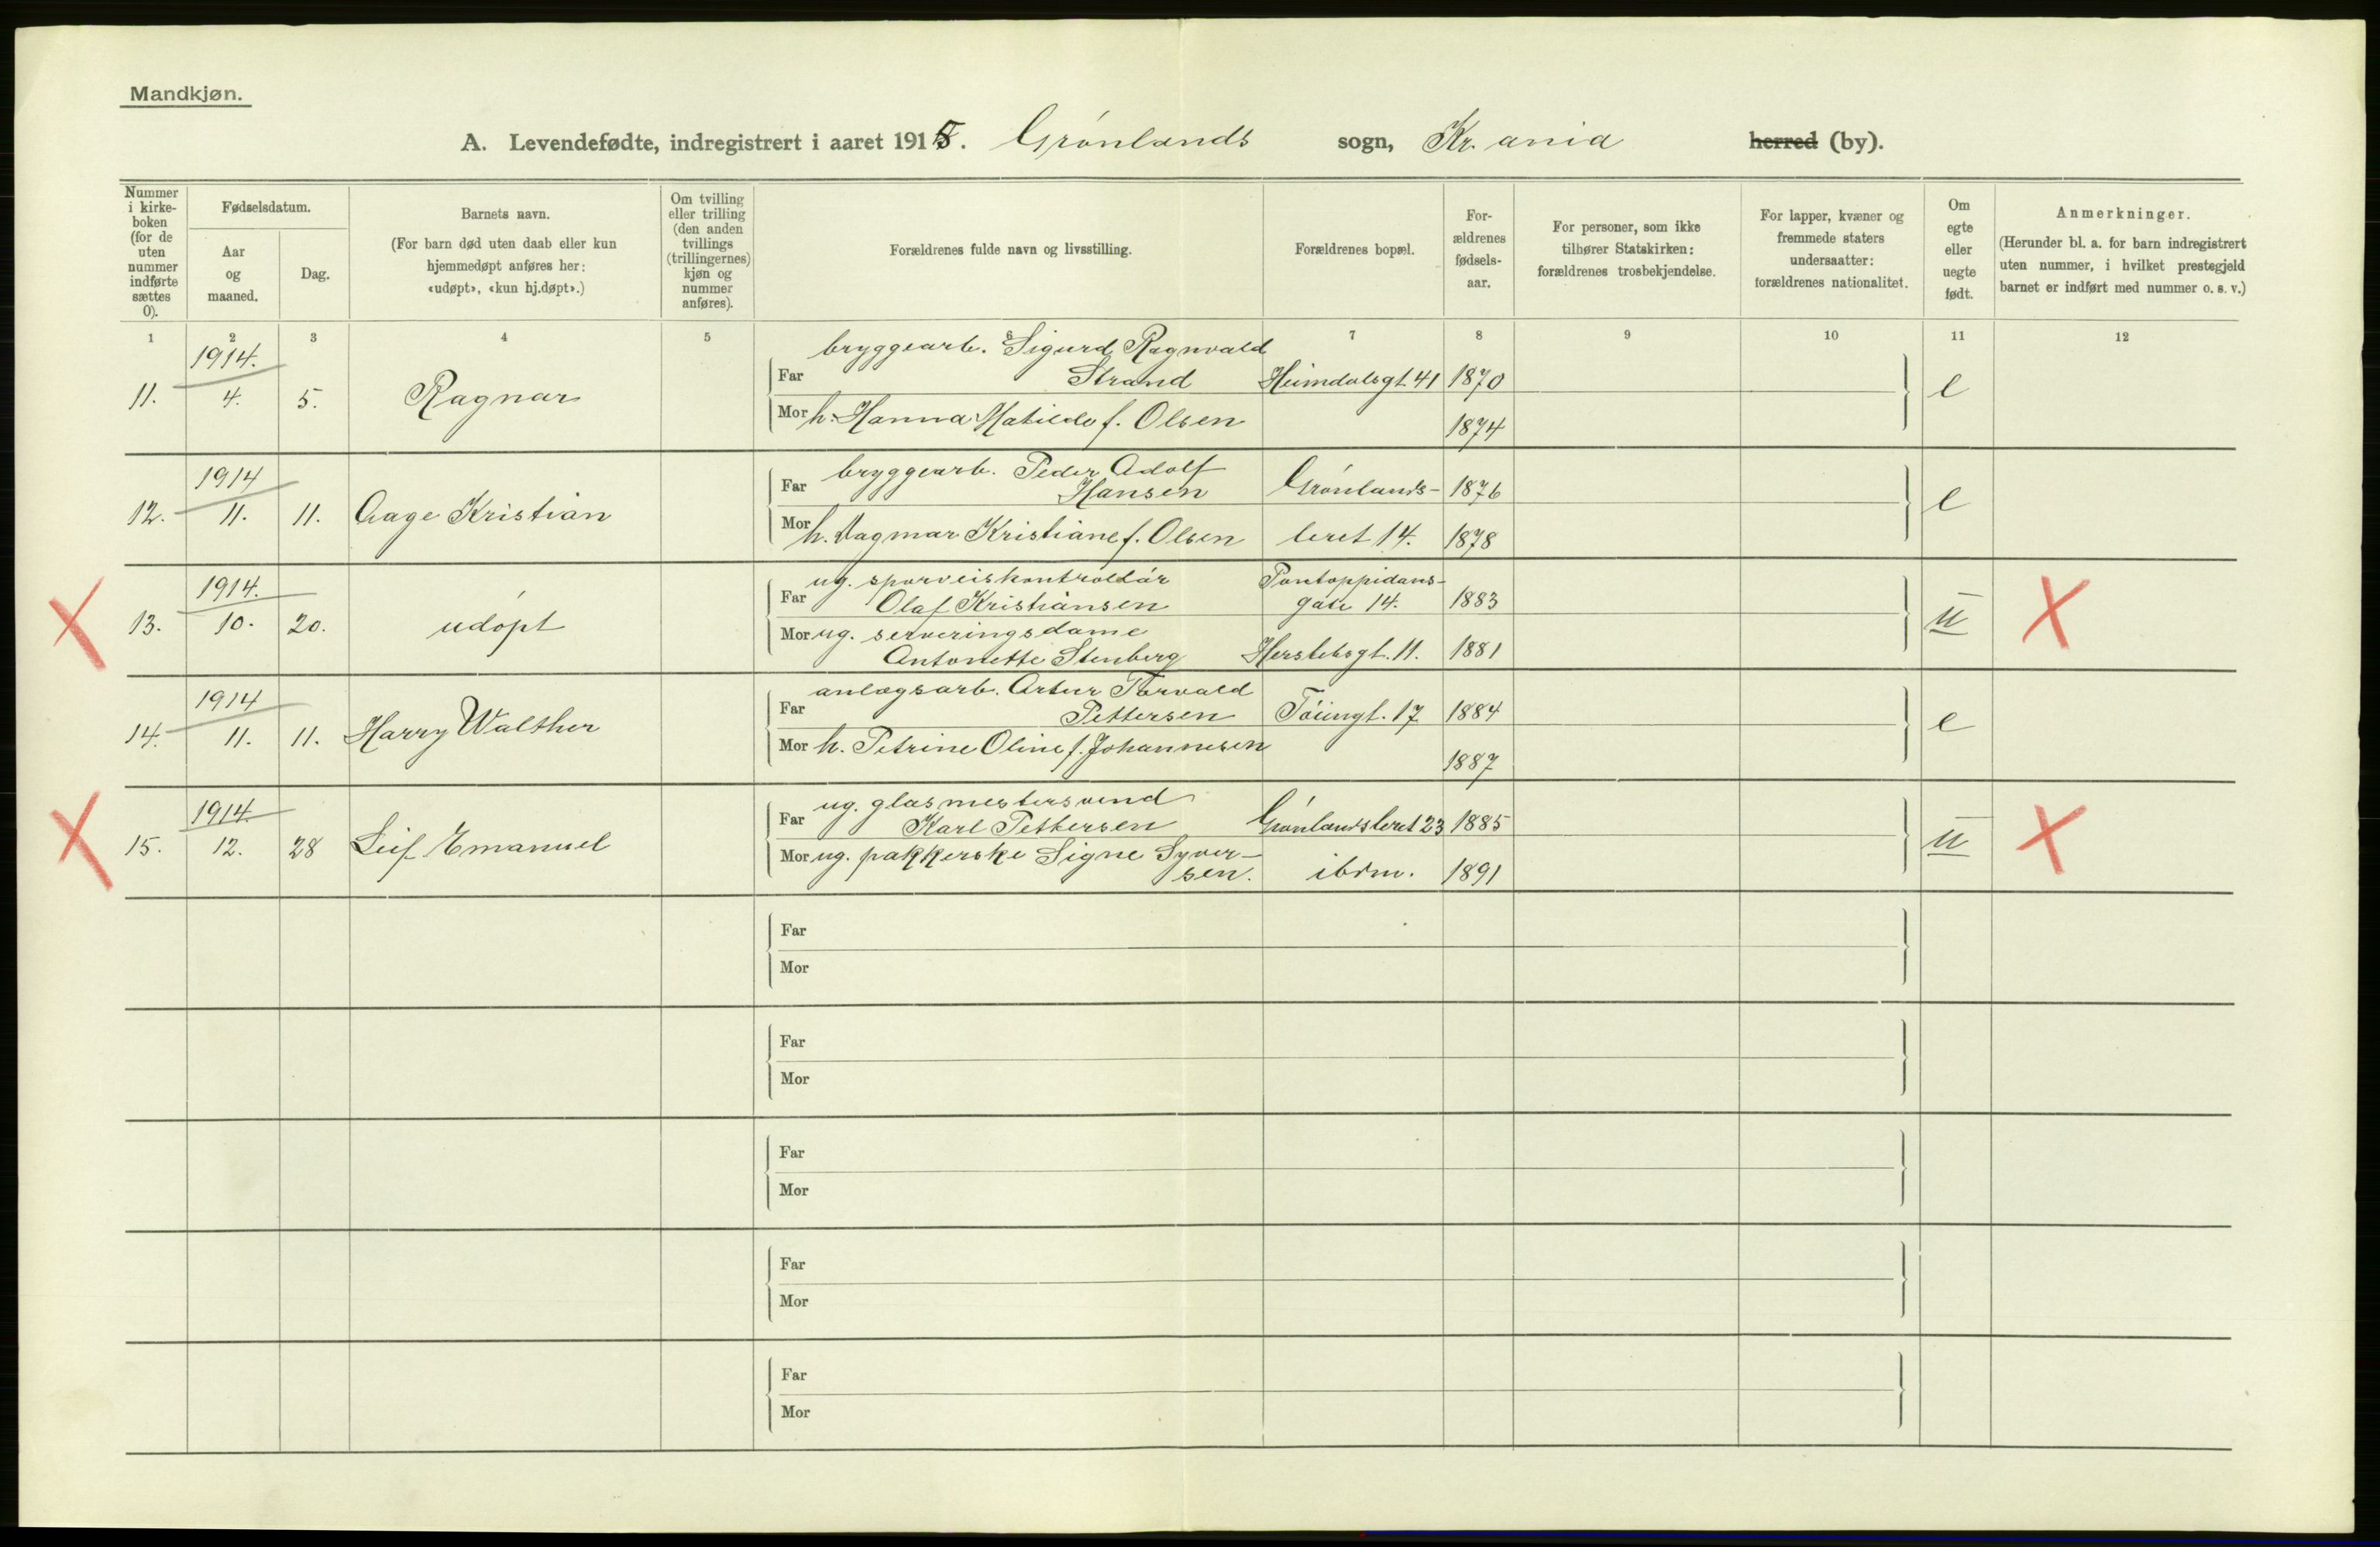 Mandkjøn.
A. Levendefødte, indregistrert i aaret 1915. Grønlands sogn, Kr.ania herred (by).
Nummer i kirke-boken (for de uten nummer indførte sættes 0).
Fødselsdatum.
Aar og maaned.
Dag.
Barnets navn.
(For barn død uten daab eller kun hjemmedøpt anføres her: «udøpt», «kun hj.døpt».)
Om tvilling eller trilling (den anden tvillings (trillingernes) kjøn og nummer anføres).
Forældrenes fulde navn og livsstilling.
Forældrenes bopæl.
For-ældrenes fødsels-aar.
For personer, som ikke tilhører Statskirken: forældrenes trosbekjendelse.
For lapper, kvæner og fremmede staters undersaatter: forældrenes nationalitet.
Om egte eller uegte født.
Anmerkninger.
(Herunder bl. a. for barn indregistrert uten nummer, i hvilket prestegjeld barnet er indført med nummer o. s. v.)
1 2 3 4 5 6 7 8 9 10 11 12
1914.
11. 4. 5. Ragnar
Far bryggearb. Sigurd Ragnvald
Strand Heimdalsgt. 41 1870 e
Mor h. Hanna Matilde f. Olsen 1874
1914
12. 11. 11. Aage Kristian
Far bryggearb. Peder Adolf
Hansen Grønlands- 1876 e
Mor h. Dagmar Kristiane f. Olsen leret 14. 1878
1914.
13. 10. 20. udøpt
Far ug. sporveiskontrollør Pontoppidans-
Olaf Kristiansen gate 14. 1883 u X
Mor ug. serveringsdame
Antonette Stenberg Herslebsgt. 11. 1881
1914
14. 11. 11. Harry Walther
Far anlægsarb. Artur Torvald
Pettersen Tøiengt. 17 1884 e
Mor h. Petrine Oline f. Johannesen
1887
1914.
15. 12. 28 Leif Emanuel
Far ug. glasmestersvend
Karl Pettersen Grønlandsleret 23 1885 u X
Mor ug. pakkerske Signe Syver-
sen. ibdm. 1891
Far
Mor
Far
Mor
Far
Mor
Far
Mor
Far
Mor